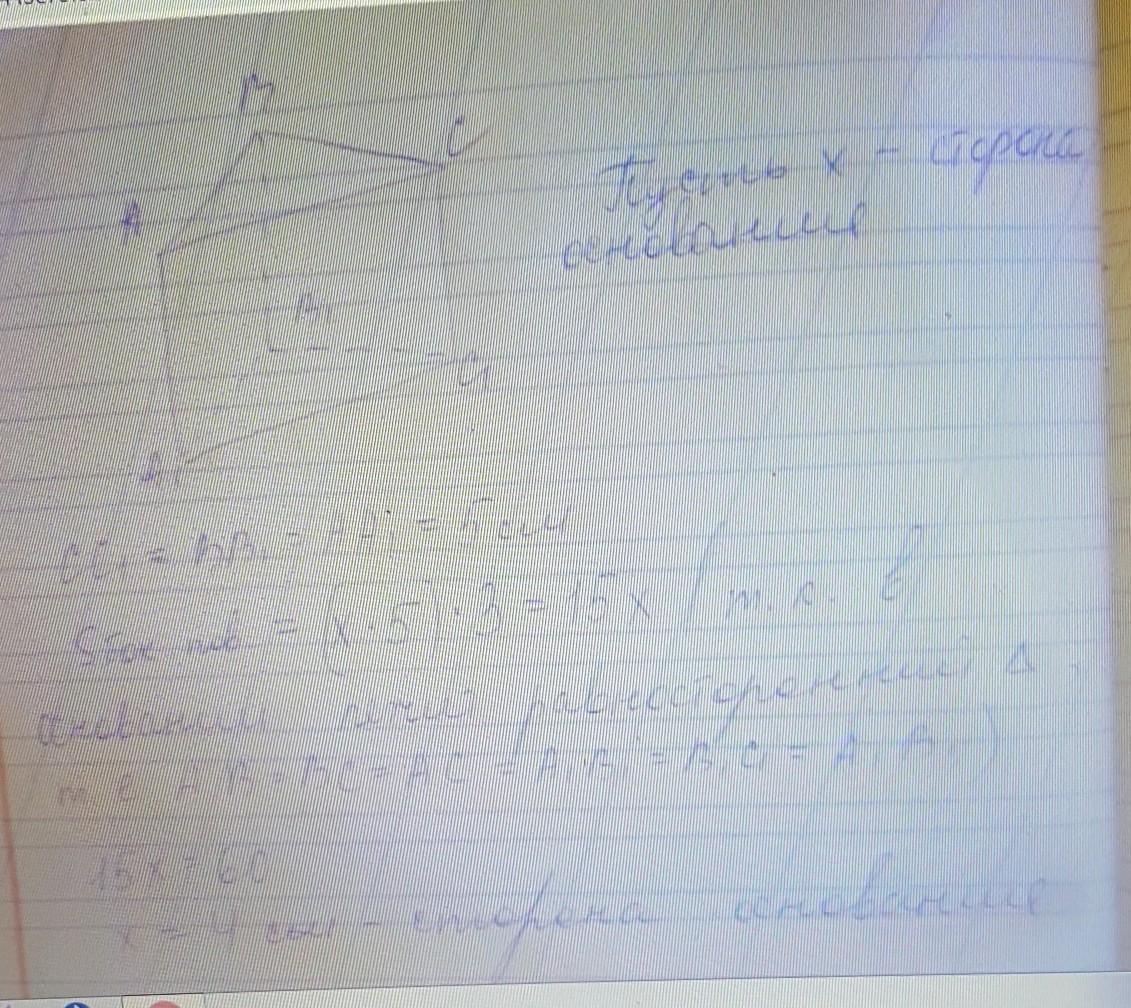 B
C
A
Пусть x - сторона
основания
B₁
C₁
A₁
CC₁ = BB₁ = AA₁ = 5 см
Sбок пов = (x · 5) · 3 = 15x (т.к. в
основании лежит равносторонний Δ,
т.е AB = BC = AC = A₁B₁ = B₁C₁ =
15x = 60
x = 4 см - сторона основания